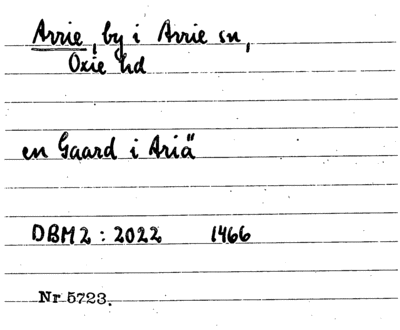 Arrie, by i Arrie sn,
Oxie hd
en Gaard i Ariä
DBM2: 2022 1466
Nr 5723.